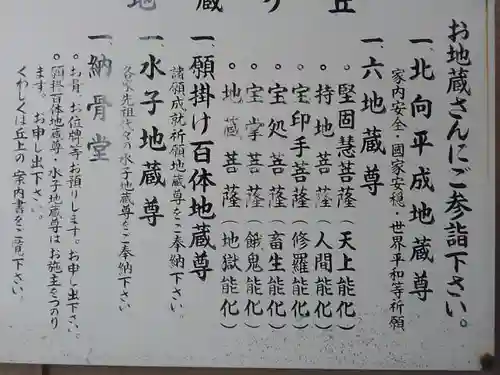 地蔵り丘
お地蔵さんにご参詣下さい。
一、北向平成地蔵尊
家内安全・國家安穏・世界平和等祈願
一、六地蔵尊
。堅固慧菩薩(天上能化)
。持地菩薩(人間能化)
。宝印手菩薩(修羅能化)
。宝処菩薩(畜生能化)
。宝掌菩薩(餓鬼能化)
。地蔵菩薩(地獄能化)
一、願掛け百体地蔵尊
諸願成就祈願地蔵尊をご奉納下さい
一、水子地蔵尊
各家先祖代々の水子地蔵尊をご奉納下さい
一、納骨堂
。お骨、お位牌等お預りします。お申し出下さい。
。願掛百体地蔵尊・水子地蔵尊はお施主をつのり
ます。お申し出下さい。
くわしくは丘上の案内書をご覧下さい。